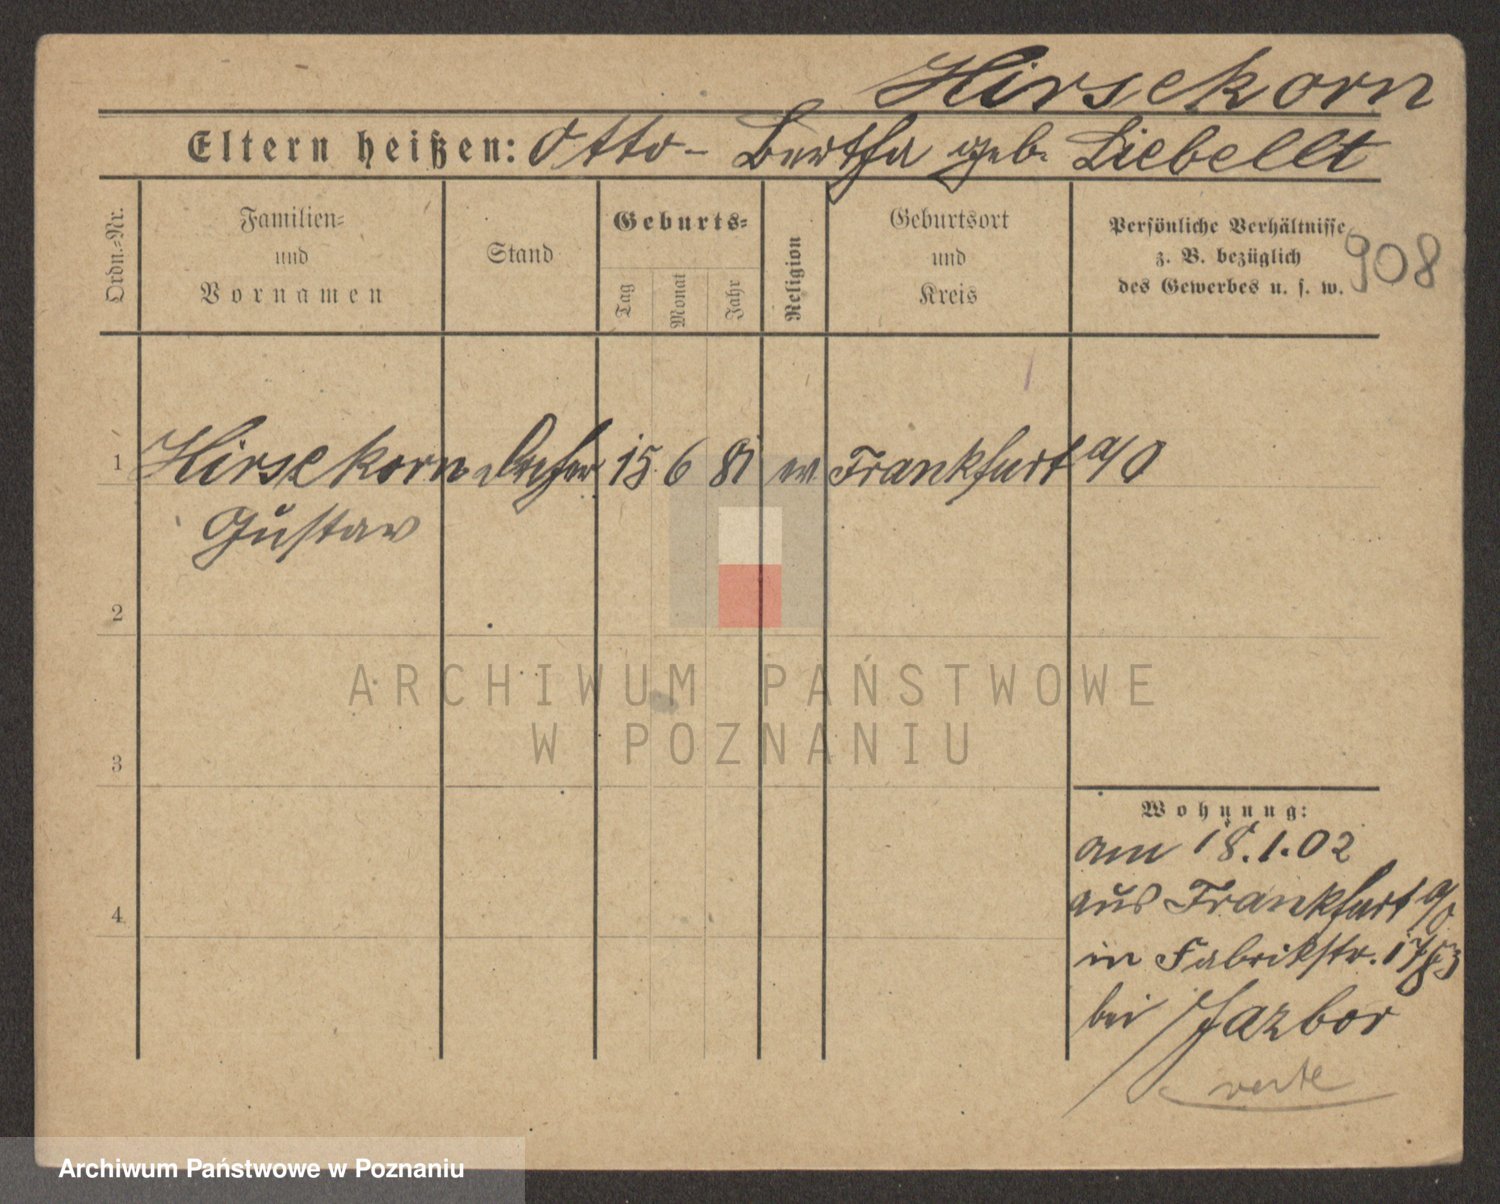 Hirsekorn
Eltern heißen: Otto - Bertha geb. Liebellt
Ordn.-Nr.
Familien-
und
Vornamen
Stand
Geburts-
Tag
Monat
Jahr
Religion
Geburtsort
und
Kreis
Persönliche Verhältnisse
z. B. bezüglich
des Gewerbes u. s. w.
908
1 Hirsekorn Dreher 15 6 81 ev Frankfurt a/O
Gustav
2
3
4
Wohnung:
am 18.1.02
aus Frankfurt a/O
in Fabrikstr.
bei Jazbor
verte
ARCHIWUM PAŃSTWOWE
W POZNANIU
Archiwum Państwowe w Poznaniu